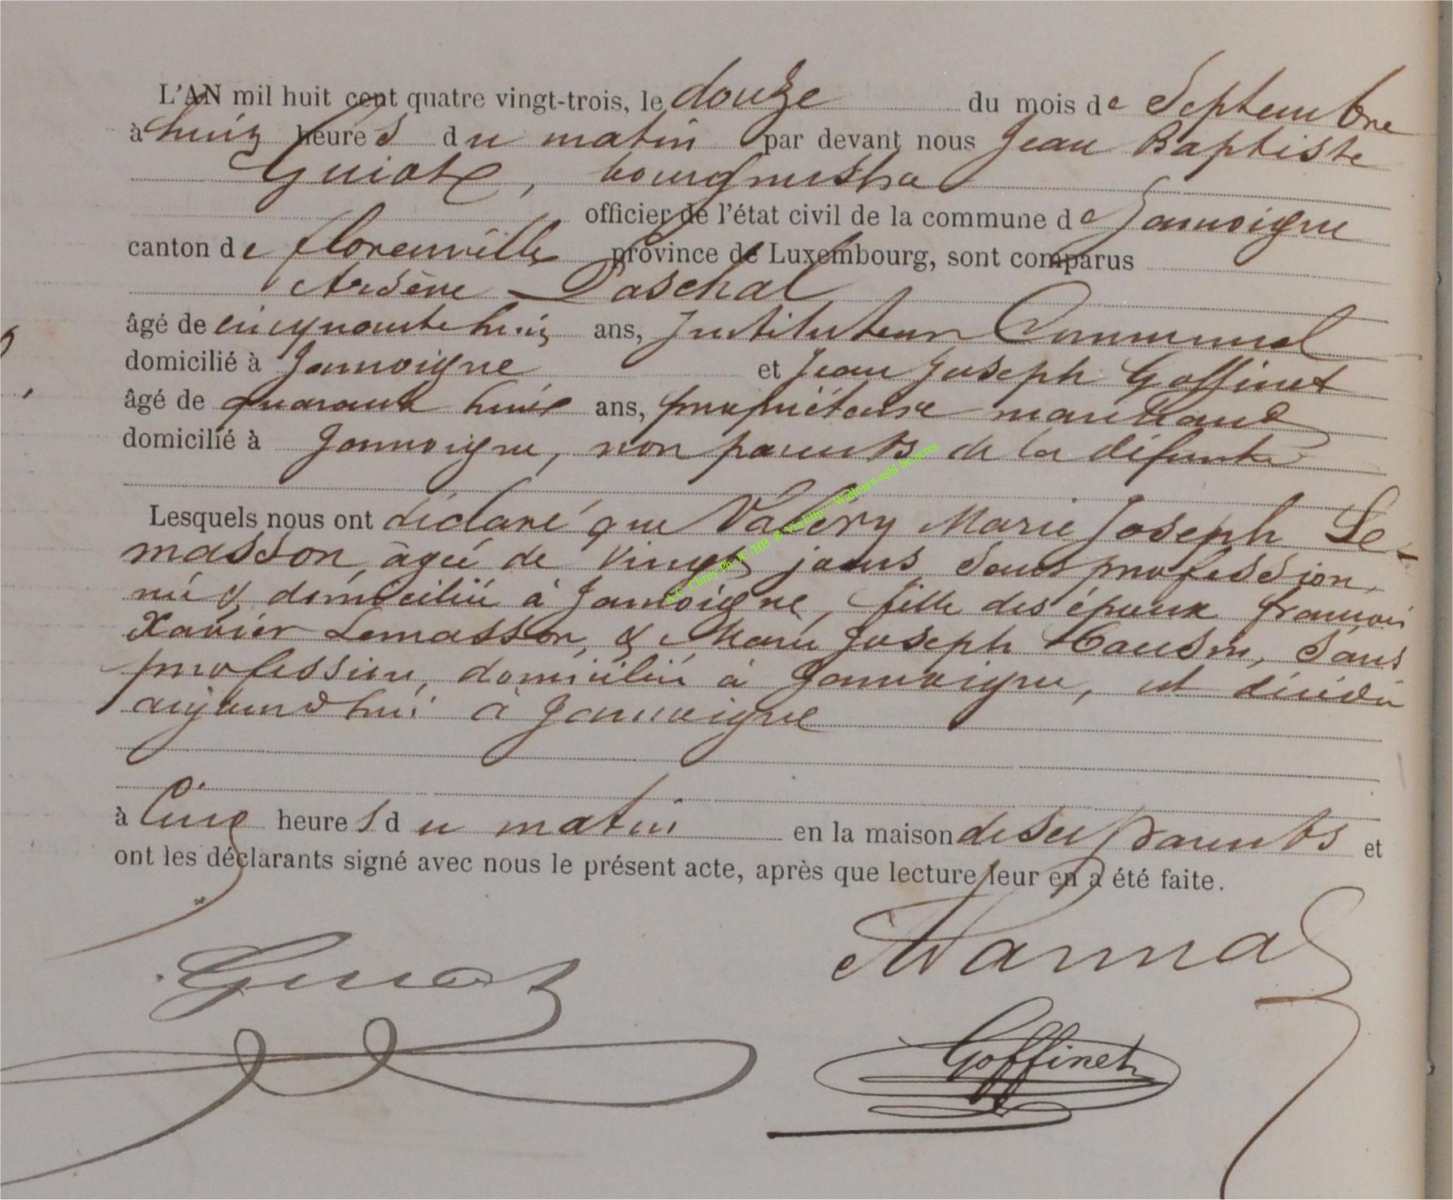 L'AN mil huit cent quatre vingt-trois, le douze du mois de Septembre
à huit heures du matin par devant nous Jean Baptiste
Guiot, bourgmestre
officier de l'état civil de la commune de Jamoigne
canton de florenville province de Luxembourg, sont comparus
Arsène Paschal
âgé de cinquante huit ans, Instituteur Communal
domicilié à Jamoigne et Jean Joseph Goffinet
âgé de quarante huit ans, propriétaire marchand
domicilié à Jamoigne, non parents de la défunte
Lesquels nous ont déclaré que Valery Marie Joseph Le-
masson, âgée de vingt jours sans profession,
née & domiciliée à Jamoigne, fille des époux françois
Xavier Lemasson, & Marie Joseph sans
profession, domiciliés à Jamoigne, est décédée
aujourd'hui à Jamoigne
à Cinq heures du matin en la maison de ses parents et
ont les déclarants signé avec nous le présent acte, après que lecture leur en a été faite.
Guiot
Goffinet